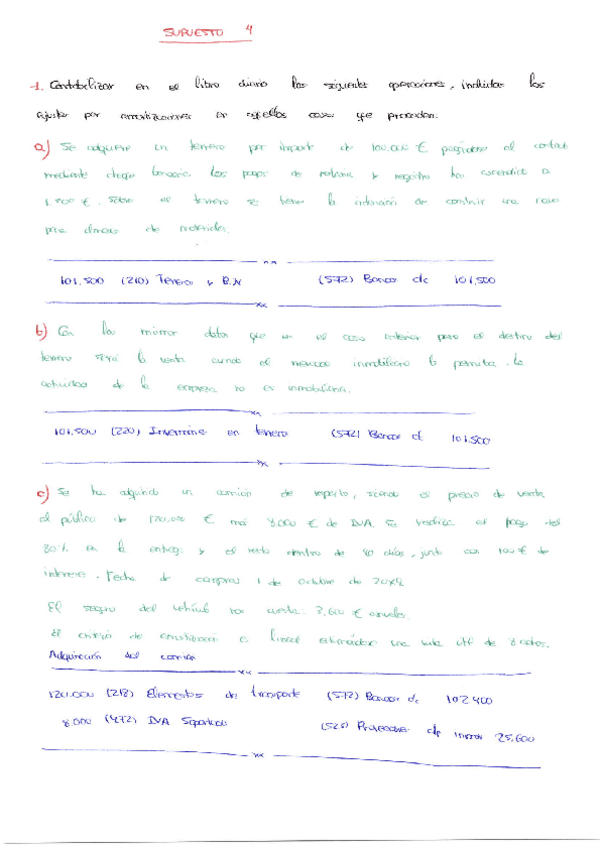 SUPUESTO 4
1. Contabilizar en el libro diario las siguientes operaciones, incluidas los
ajustes por amortizaciones en aquellos casos que procedan.
a) Se adquiere un terreno por importe de 100.000 € pagándose al contado
mediante cheque bancario. Los gastos de notaría y registro han ascendido a
1.500 €. Sobre el terreno se tiene la intención de construir una nave
para almacén de
101.500 (210) Terreno y B.N (572) Bancos c/c 101.500
b) Con los mismos datos que en el caso anterior pero el destino del
terreno será la venta cuando el mercado inmobiliario lo permita. La
actividad de la empresa no es inmobiliaria.
101.500 (220) Inversiones en terreno (572) Bancos c/ 101.500
c) Se ha adquirido un camión de reparto, siendo el precio de venta
al público de 120.000 € más 8.000 € de IVA. Se realiza el pago del
80% en la entrega y el resto dentro de 90 días, junto con 100 € de
intereses. Fecha de compra 1 de Octubre de 20X4
El seguro del vehículo nos cuesta 3.600 € anuales.
El criterio de amortización es lineal estimándose una vida útil de 8 años.
Adquisición del camión
120.000 (218) Elementos de transporte (572) Bancos c/c 102.400
8.000 (472) IVA Soportado (523) Proveedores de inmov 25.600